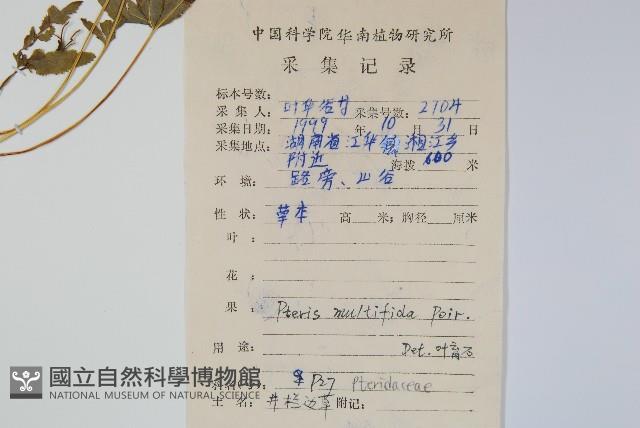 中国科学院华南植物研究所
采集记录
标本号数:
采集人: 叶华谷 采集号数: 2104
采集日期: 1999 年 10 月 31 日
采集地点: 湖南省江华县 湘江乡
附近 海拨 600 米
环 境: 路旁、山谷
性 状: 草本 高 米; 胸径 厘米
叶:
花:
果:
Pteris multifida Poir.
用 途: Det. 叶育石
P27 Pteridaceae
土 名: 井栏边草 附记:
國立自然科學博物館
NATIONAL MUSEUM OF NATURAL SCIENCE